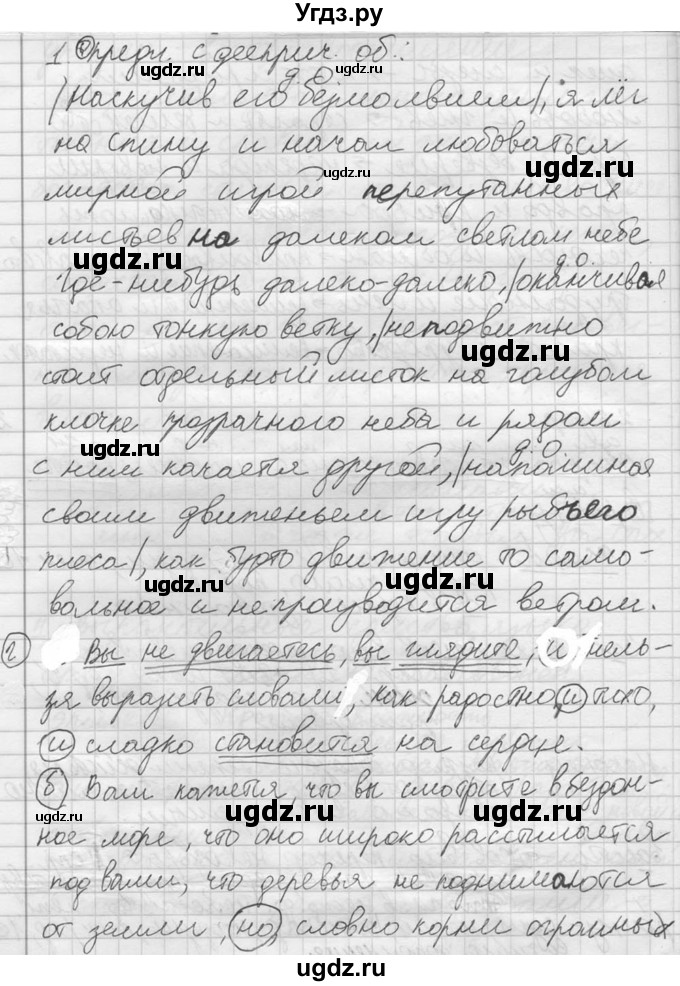 Угдз.ру
1 а) предл. с дееприч. об.:
д.о
|Наскучив его безмолвием|, я лёг
на спину и начал любоваться
мирной игрой перепутанных
листьев на далеком светлом небе
д.о.
Где-нибудь далеко-далеко, |оканчивая
собою тонкую ветку,| неподвижно
стоит отдельный листок на голубом
клочке прозрачного неба и рядом
д.о
с ним качается другой, |напоминая
своим движеньем игру рыбьего
плеса|, как будто движение то само-
вольное и непроизводится ветром.
2 Вы не двигаетесь, вы глядите, и нель-
зя выразить словами, как радостно, и тихо,
и сладко становится на сердце.
б) Вам кажется, что вы смотрите в бездон-
ное море, что оно широко расстилается
под вами, что деревья не поднимаются
от земли, но, словно корни огромных
ugdz.ru